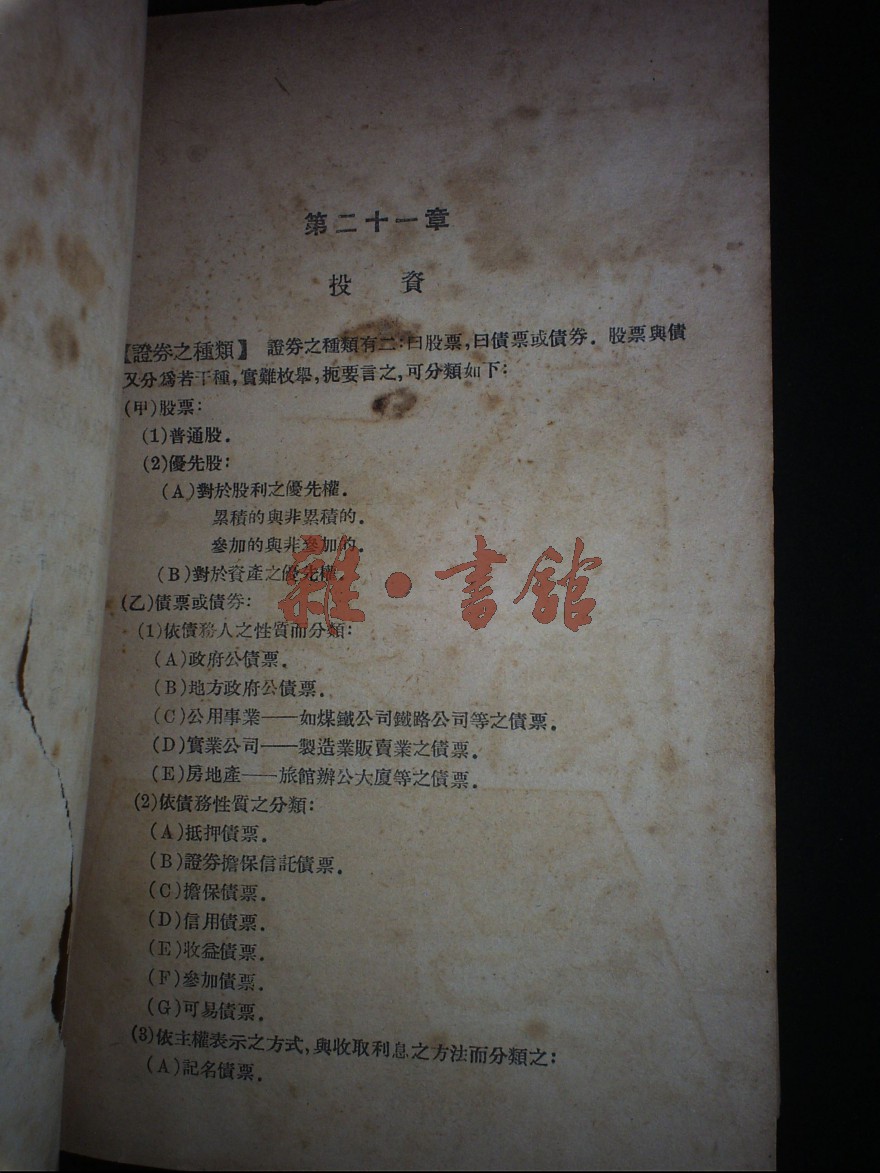 第二十一章
投資
【證券之種類】 證券之種類有二:曰股票,曰債票或債券. 股票與債
又分爲若干種,實難枚舉,扼要言之,可分類如下:
(甲)股票:
(1)普通股.
(2)優先股:
(A)對於股利之優先權.
累積的與非累積的.
參加的與非參加的.
(B)對於資產之優先權.
(乙)債票或債券:
(1)依債務人之性質而分類:
(A)政府公債票.
(B)地方政府公債票.
(C)公用事業——如煤鐵公司鐵路公司等之債票.
(D)實業公司——製造業販賣業之債票.
(E)房地產——旅館辦公大廈等之債票.
(2)依債務性質之分類:
(A)抵押債票.
(B)證券擔保信託債票.
(C)擔保債票.
(D)信用債票.
(E)收益債票.
(F)參加債票.
(G)可易債票.
(3)依主權表示之方式,與收取利息之方法而分類之:
(A)記名債票.
雜·書館